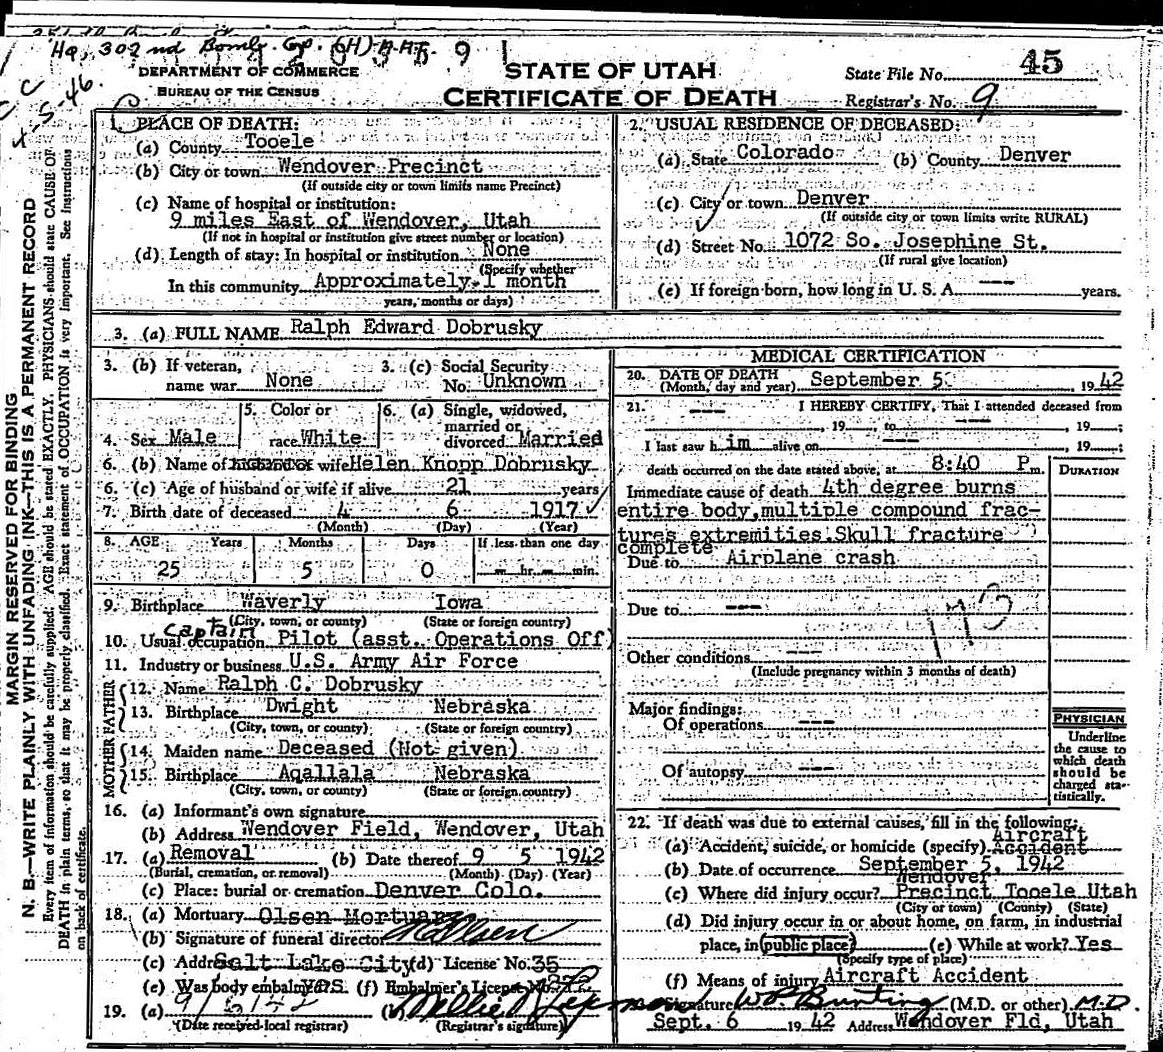 Hq, 302nd Bomb. Gp. (H) A.A.F.
DEPARTMENT OF COMMERCE
BUREAU OF THE CENSUS
STATE OF UTAH
CERTIFICATE OF DEATH
State File No. 45
Registrar's No. 9
MARGIN RESERVED FOR BINDING
N. B.—WRITE PLAINLY WITH UNFADING INK—THIS IS A PERMANENT RECORD
Every item of information should be carefully supplied. AGE should be stated EXACTLY. PHYSICIANS should state CAUSE OF
DEATH in plain terms, so that it may be properly classified. Exact statement of OCCUPATION is very important. See Instructions
on back of certificate.
1. PLACE OF DEATH:
(a) County Tooele
(b) City or town Wendover Precinct
(If outside city or town limits name Precinct)
(c) Name of hospital or institution:
9 miles East of Wendover, Utah
(If not in hospital or institution give street number or location)
(d) Length of stay: In hospital or institution None
(Specify whether
In this community Approximately 1 month
years, months or days)
2. USUAL RESIDENCE OF DECEASED:
(a) State Colorado (b) County Denver
(c) City or town Denver
(If outside city or town limits write RURAL)
(d) Street No. 1072 So. Josephine St.
(If rural give location)
(e) If foreign born, how long in U. S. A. --- years.
3. (a) FULL NAME Ralph Edward Dobrusky
3. (b) If veteran, name war None
3. (c) Social Security No. Unknown
4. Sex Male
5. Color or race White
6. (a) Single, widowed, married or divorced Married
6. (b) Name of husband or wife Helen Knopp Dobrusky
6. (c) Age of husband or wife if alive 21 years
7. Birth date of deceased 4 6 1917
(Month) (Day) (Year)
8. AGE Years Months Days If less than one day
25 5 0 - hr. - min.
9. Birthplace Waverly Iowa
(City, town, or county) (State or foreign country)
Captain
10. Usual occupation Pilot (asst. Operations Off)
11. Industry or business U.S. Army Air Force
FATHER
12. Name Ralph C. Dobrusky
13. Birthplace Dwight Nebraska
(City, town, or county) (State or foreign country)
MOTHER
14. Maiden name Deceased (Not given)
15. Birthplace Aqallala Nebraska
(City, town, or county) (State or foreign country)
16. (a) Informant's own signature
(b) Address Wendover Field, Wendover, Utah
17. (a) Removal (b) Date thereof 9 5 1942
(Burial, cremation, or removal) (Month) (Day) (Year)
(c) Place: burial or cremation Denver Colo.
18. (a) Mortuary Olsen Mortuary
(b) Signature of funeral director
(c) Address Salt Lake City (d) License No. 35
(e) Was body embalmed? yes (f) Embalmer's License No. 272
19. (a) 9/6/42 (b)
(Date received local registrar) (Registrar's signature)
MEDICAL CERTIFICATION
20. DATE OF DEATH
(Month, day and year) September 5 1942
21. --- I HEREBY CERTIFY, That I attended deceased from
---, 19---, to ---, 19---;
I last saw him alive on ---, 19---;
death occurred on the date stated above, at 8:40 P m.
DURATION
Immediate cause of death 4th degree burns
entire body, multiple compound frac-
tures extremities. Skull fracture
complete
Due to Airplane crash
Due to ---
173
Other conditions ---
(Include pregnancy within 3 months of death)
Major findings:
Of operations ---
Of autopsy ---
PHYSICIAN
Underline
the cause to
which death
should be
charged sta-
tistically.
22. If death was due to external causes, fill in the following:
Aircraft
(a) Accident, suicide, or homicide (specify) Accident
(b) Date of occurrence September 5, 1942
Wendover
(c) Where did injury occur? Precinct Tooele Utah
(City or town) (County) (State)
(d) Did injury occur in or about home, on farm, in industrial
place, in public place? (e) While at work? Yes
(Specify type of place)
(f) Means of injury Aircraft Accident
Signature W.P. Bunting (M.D. or other) M.D.
Sept. 6 1942 Address Wendover Fld, Utah